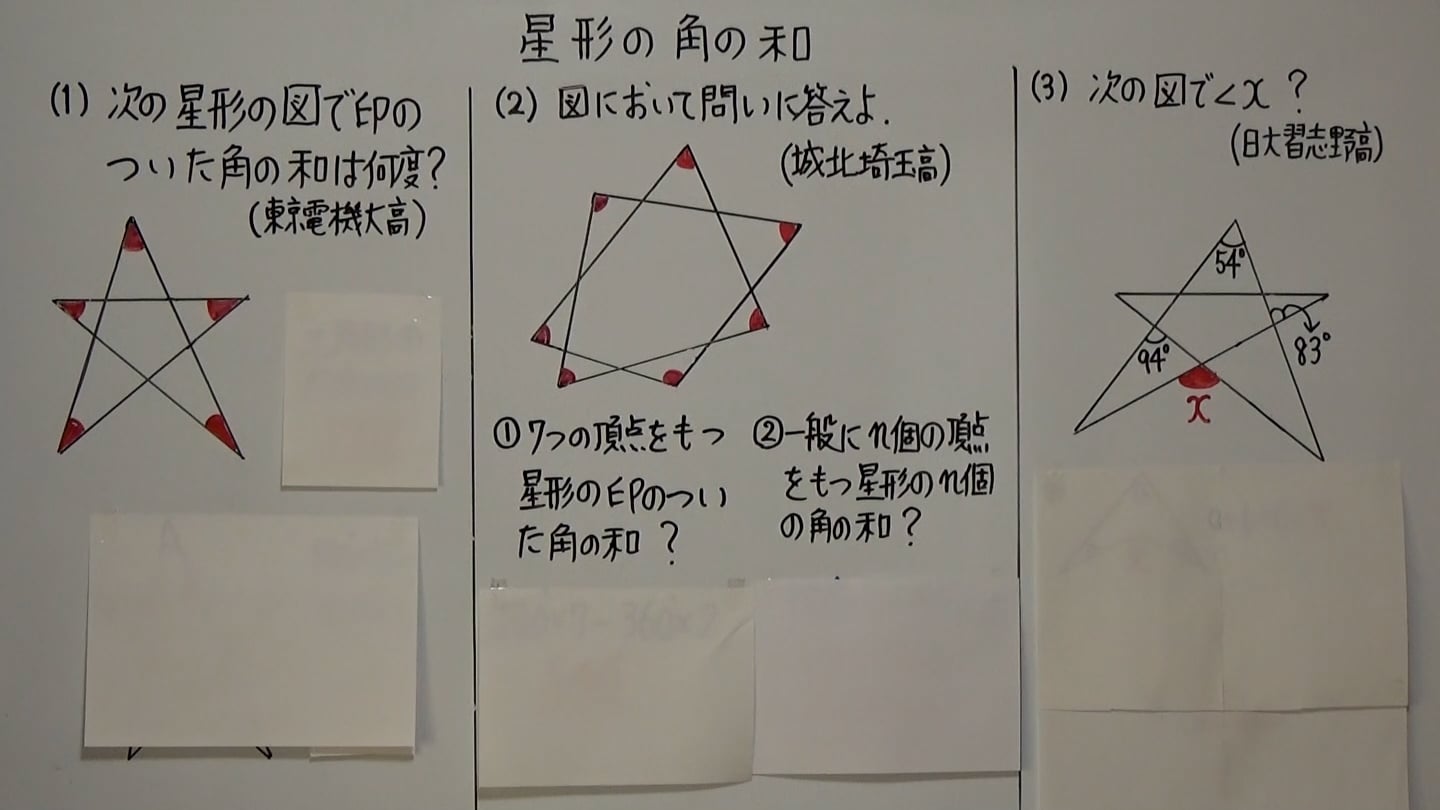 星形の角の和
(1) 次の星形の図で印の
ついた角の和は何度?
(東京電機大高)
(2) 図において問いに答えよ.
(城北埼玉高)
①7つの頂点をもつ
星形の印のつい
た角の和 ?
②一般にn個の頂点
をもつ星形のn個
の角の和?
(3) 次の図で∠x ?
(日大習志野高)
54°
94°
83°
x